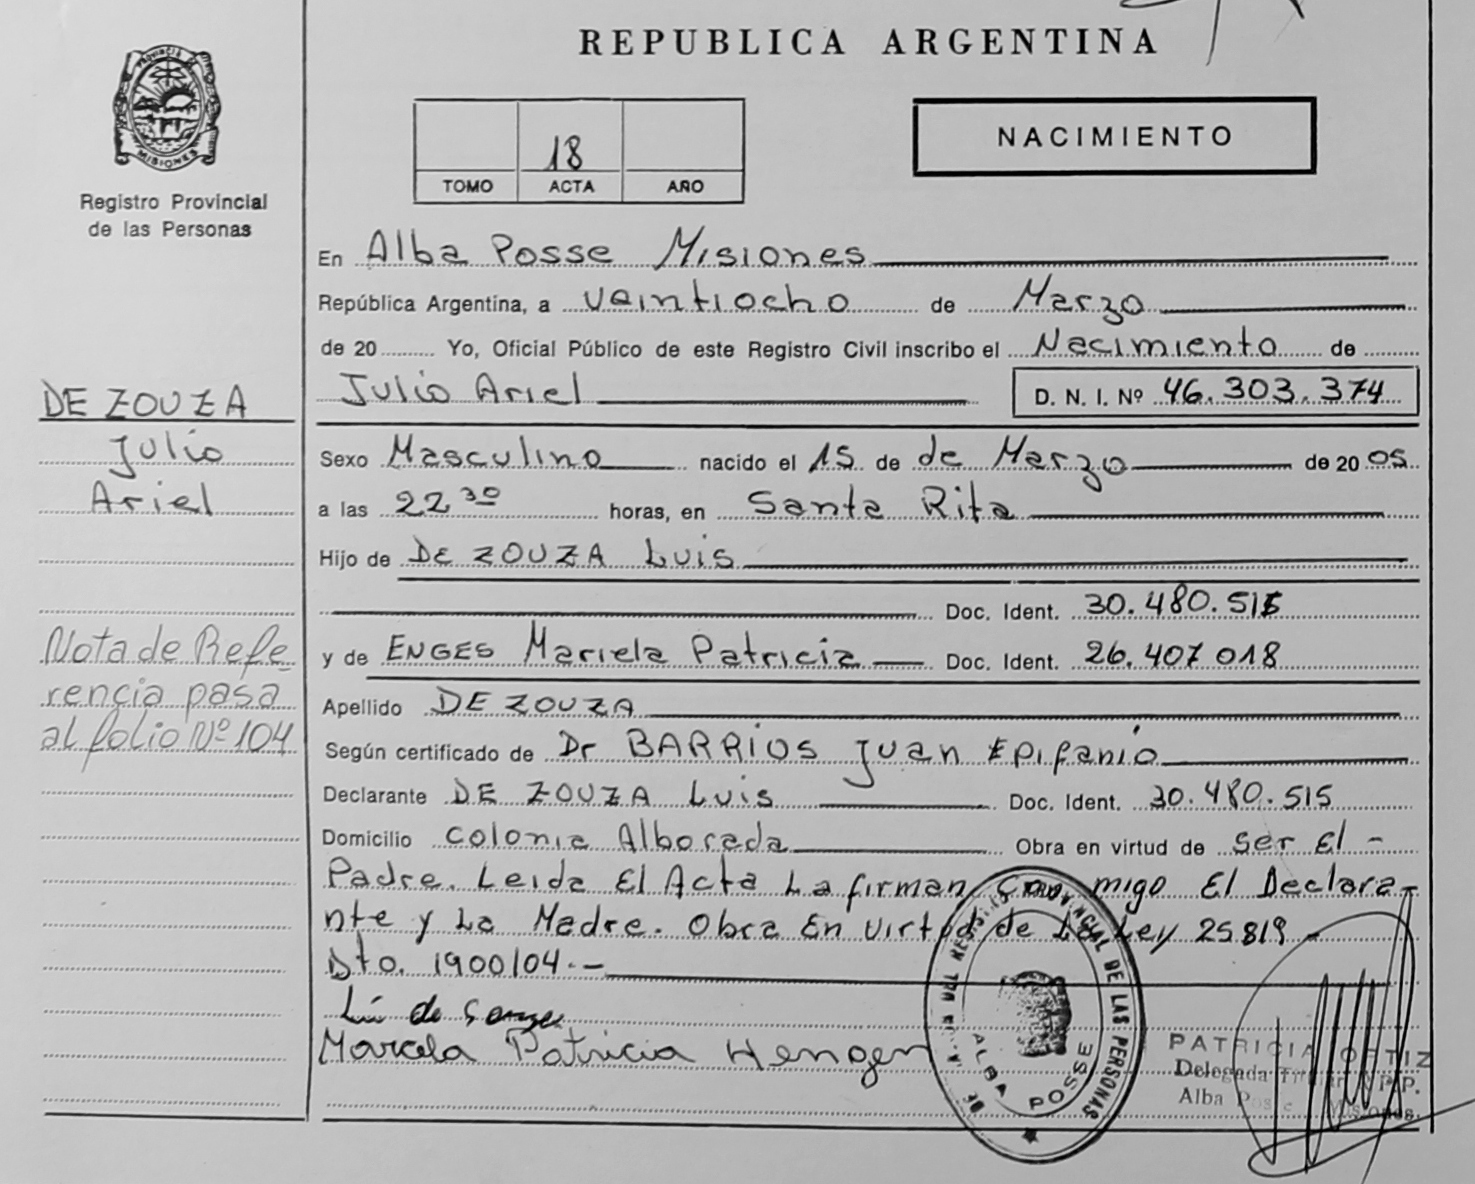 REPUBLICA ARGENTINA
PROVINCIA
MISIONES
Registro Provincial
de las Personas
18
TOMO ACTA AÑO
NACIMIENTO
En Alba Posse Misiones
República Argentina, a veintiocho de Marzo
de 20 Yo, Oficial Público de este Registro Civil inscribo el Nacimiento de
Julio Ariel D. N. I. Nº 46.303.374
DE ZOUZA
Julio
Ariel
Sexo Masculino nacido el 15 de de Marzo de 20 05
a las 22 30 horas, en Santa Rita
Hijo de DE ZOUZA Luis
Doc. Ident. 30.480.515
y de ENGES Mariela Patricia Doc. Ident. 26.407 018
Nota de Refe-
rencia pasa
al folio Nº 104
Apellido DE ZOUZA
Según certificado de Dr BARRIOS Juan Epifanio
Declarante DE ZOUZA Luis Doc. Ident. 30.480.515
Domicilio colonia Alborada Obra en virtud de Ser El -
Padre. Leida El Acta La firman Con migo El Declara-
nte y La Madre. Obra En Virtud de La Ley 25819 -
Dto. 1900/04.-
de
Patricia
PROVINCIAL DE LAS PERSONAS
ALBA POSSE
PATRICIA ORTIZ
Delegada Titular
Alba Posse Misiones